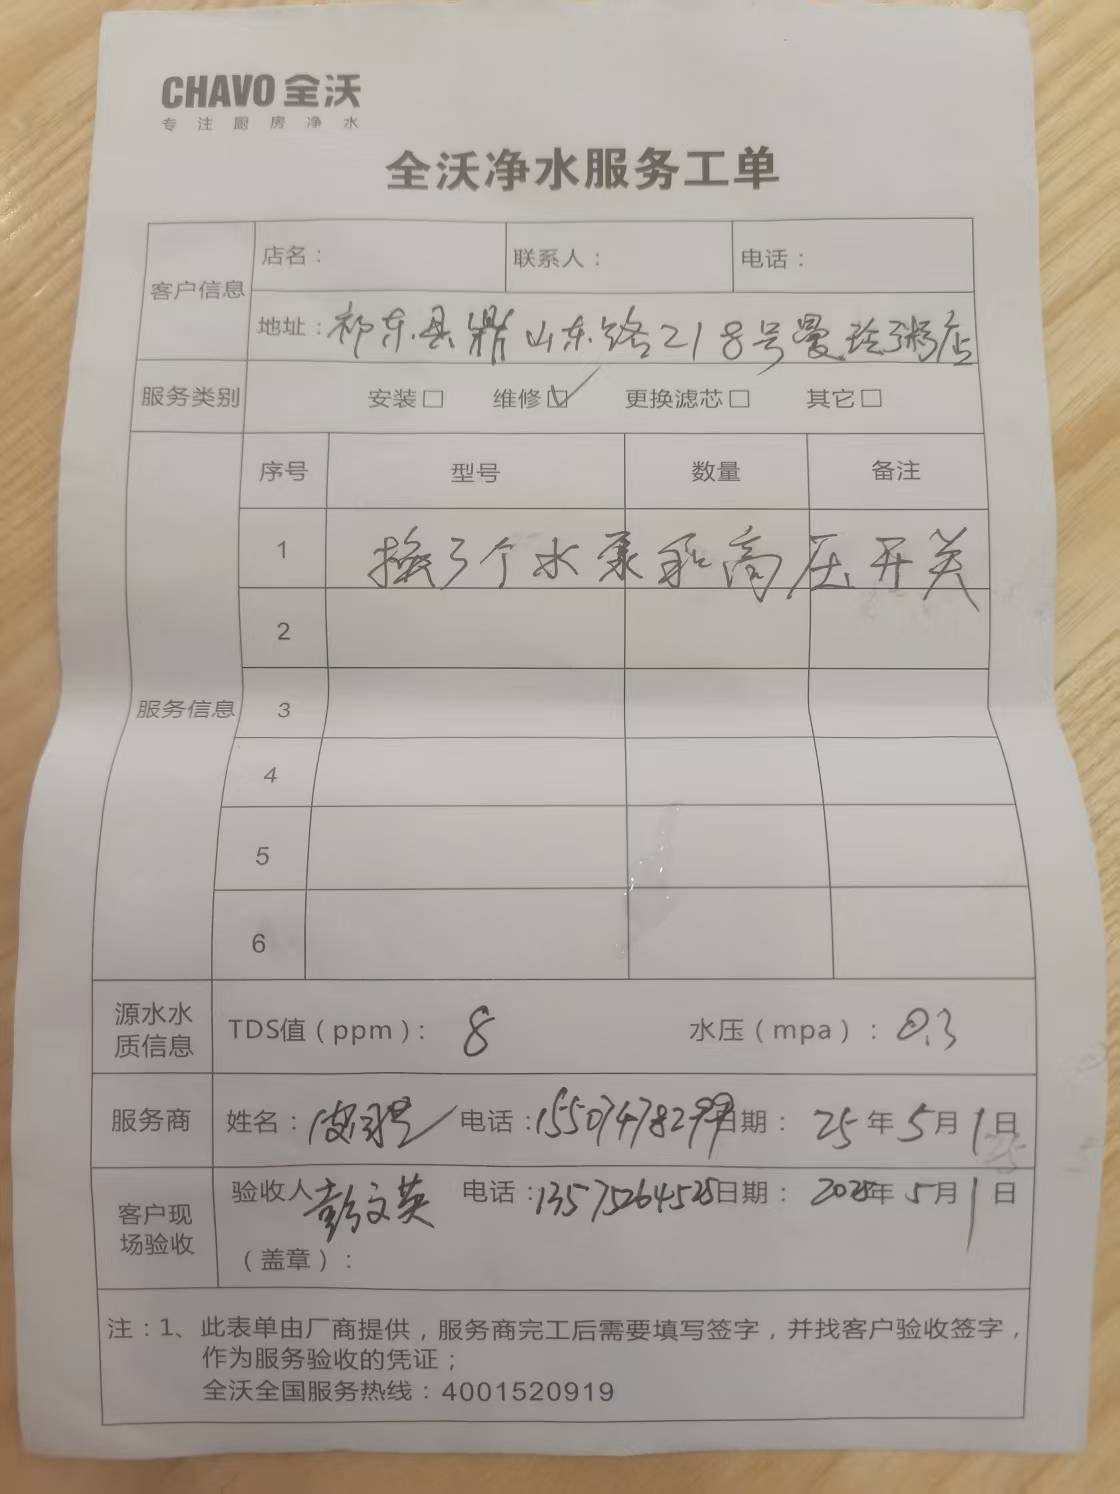 CHAVO 全沃
专注厨房净水
全沃净水服务工单
客户信息
店名：
联系人：
电话：
地址：祁东县鼎山东路218号曼玲粥店
服务类别
安装□ 维修☑ 更换滤芯□ 其它□
服务信息
序号 型号 数量 备注
1 换了个水泵和高压开关
2
3
4
5
6
源水水质信息
TDS值（ppm）：8 水压（mpa）：0.3
服务商
姓名： 电话：15507478299 日期：25年5月1日
客户现场验收
验收人 彭文英 电话：13575264528 日期：2025年5月1日
（盖章）：
注：1、此表单由厂商提供，服务商完工后需要填写签字，并找客户验收签字，
作为服务验收的凭证；
全沃全国服务热线：4001520919